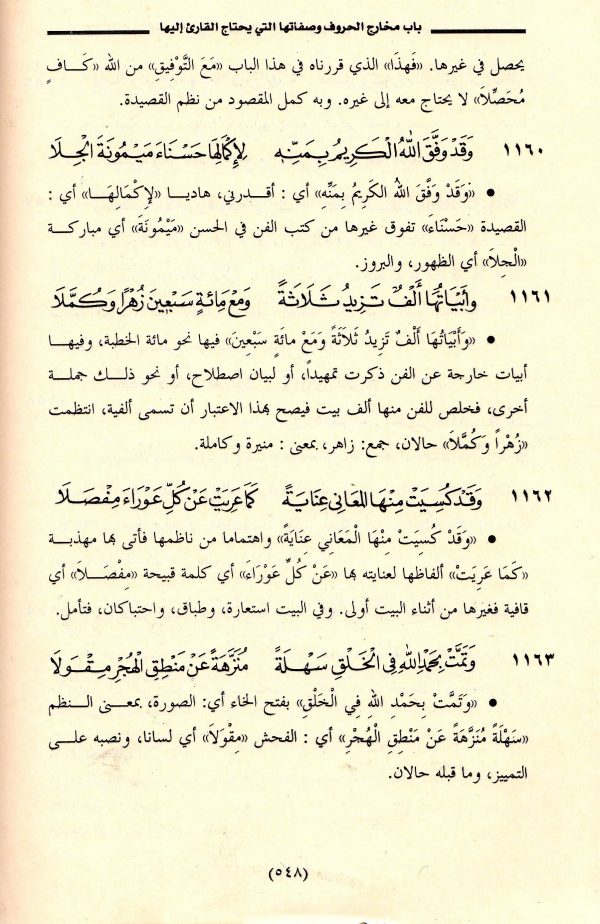 باب مخارج الحروف وصفاتها التي يحتاج القارئ إليها
يحصل في غيرها. «فَهذَا» الذي قررناه في هذا الباب «مَعَ التَّوْفِيقِ» من الله «كَــافٍ
مُحَصِّلاَ» لا يحتاج معه إلى غيره. وبه كمل المقصود من نظم القصيدة.
١١٦٠ وَقَدْ وَفَّقَ اللهُ الْكَرِيمُ بِمَنِّهِ لإِكْمَالِهَا حَسْنَاءَ مَيْمُونَةَ الْجِلَا
• «وَقَدْ وَفَّقَ اللهُ الكَرِيمُ بِمَنِّهِ» أي : أقدرني، هاديا «لإِكْمَالِهَــا» أي :
القصيدة «حَسْنَاءَ» تفوق غيرها من كتب الفن في الحسن «مَيْمُونَةَ» أي مباركة
«الْجِلاَ» أي الظهور، والبروز.
١١٦١ وَأَبْيَاتُهَا أَلْفٌ تَزِيدُ ثَلَاثَةً وَمَعْ مِائَةٍ سَبْعِينَ زُهْرًا وَكُمَّلَا
• «وَأَبْيَاتُهَا أَلْفٌ تَزِيدُ ثَلاَثَةً وَمَعْ مائَةٍ سَبْعِينَ» فيها نحو مائة الخطبة، وفيهــا
أبيات خارجة عن الفن ذكرت تمهيداً، أو لبيان اصطلاح، أو نحو ذلــك جملــة
أخرى، فخلص للفن منها ألف بيت فيصح بهذا الاعتبار أن تسمى ألفية، انتظمت
«زُهْراً وَكُمَّلاَ» حالان، جمع: زاهر، بمعنى : منيرة وكاملة.
١١٦٢ وَقَدْ كُسِيَتْ مِنْهَا الْمَعَانِي عِنَايَةً كَمَا عَرِيَتْ عَنْ كُلِّ عَوْرَاءَ مِفْصَلَا
• «وَقَدْ كُسِيَتْ مِنْهَا الْمَعَانِي عِنَايَةً» واهتماما من ناظمها فأتى بها مهذبة
«كَمَا عَرِيَتْ» ألفاظها لعنايته بها «عَنْ كُلِّ عَوْرَاءَ» أي كلمة قبيحة «مِفْصَــلاَ» أي
قافية فغيرها من أثناء البيت أولى. وفي البيت استعارة، وطباق، واحتباكان، فتأمل.
١١٦٣ وَتَمَّتْ بِحَمْدِ اللهِ فِي الْخَلْقِ سَهْلَةً مُنَزَّهَةً عَنْ مَنْطِقِ الْهُجْرِ مِقْوَلَا
• «وَتَمَّتْ بِحَمْدِ اللهِ فِي الْخَلْقِ» بفتح الخاء أي: الصورة، بمعنــى الــنظم
«سَهْلَةً مُنَزَّهَةً عَنْ مَنْطِقِ الْهُجْرِ» أي : الفحش «مِقْوَلاَ» أي لسانا، ونصبه علــى
التمييز، وما قبله حالان.
(٥٤٨)